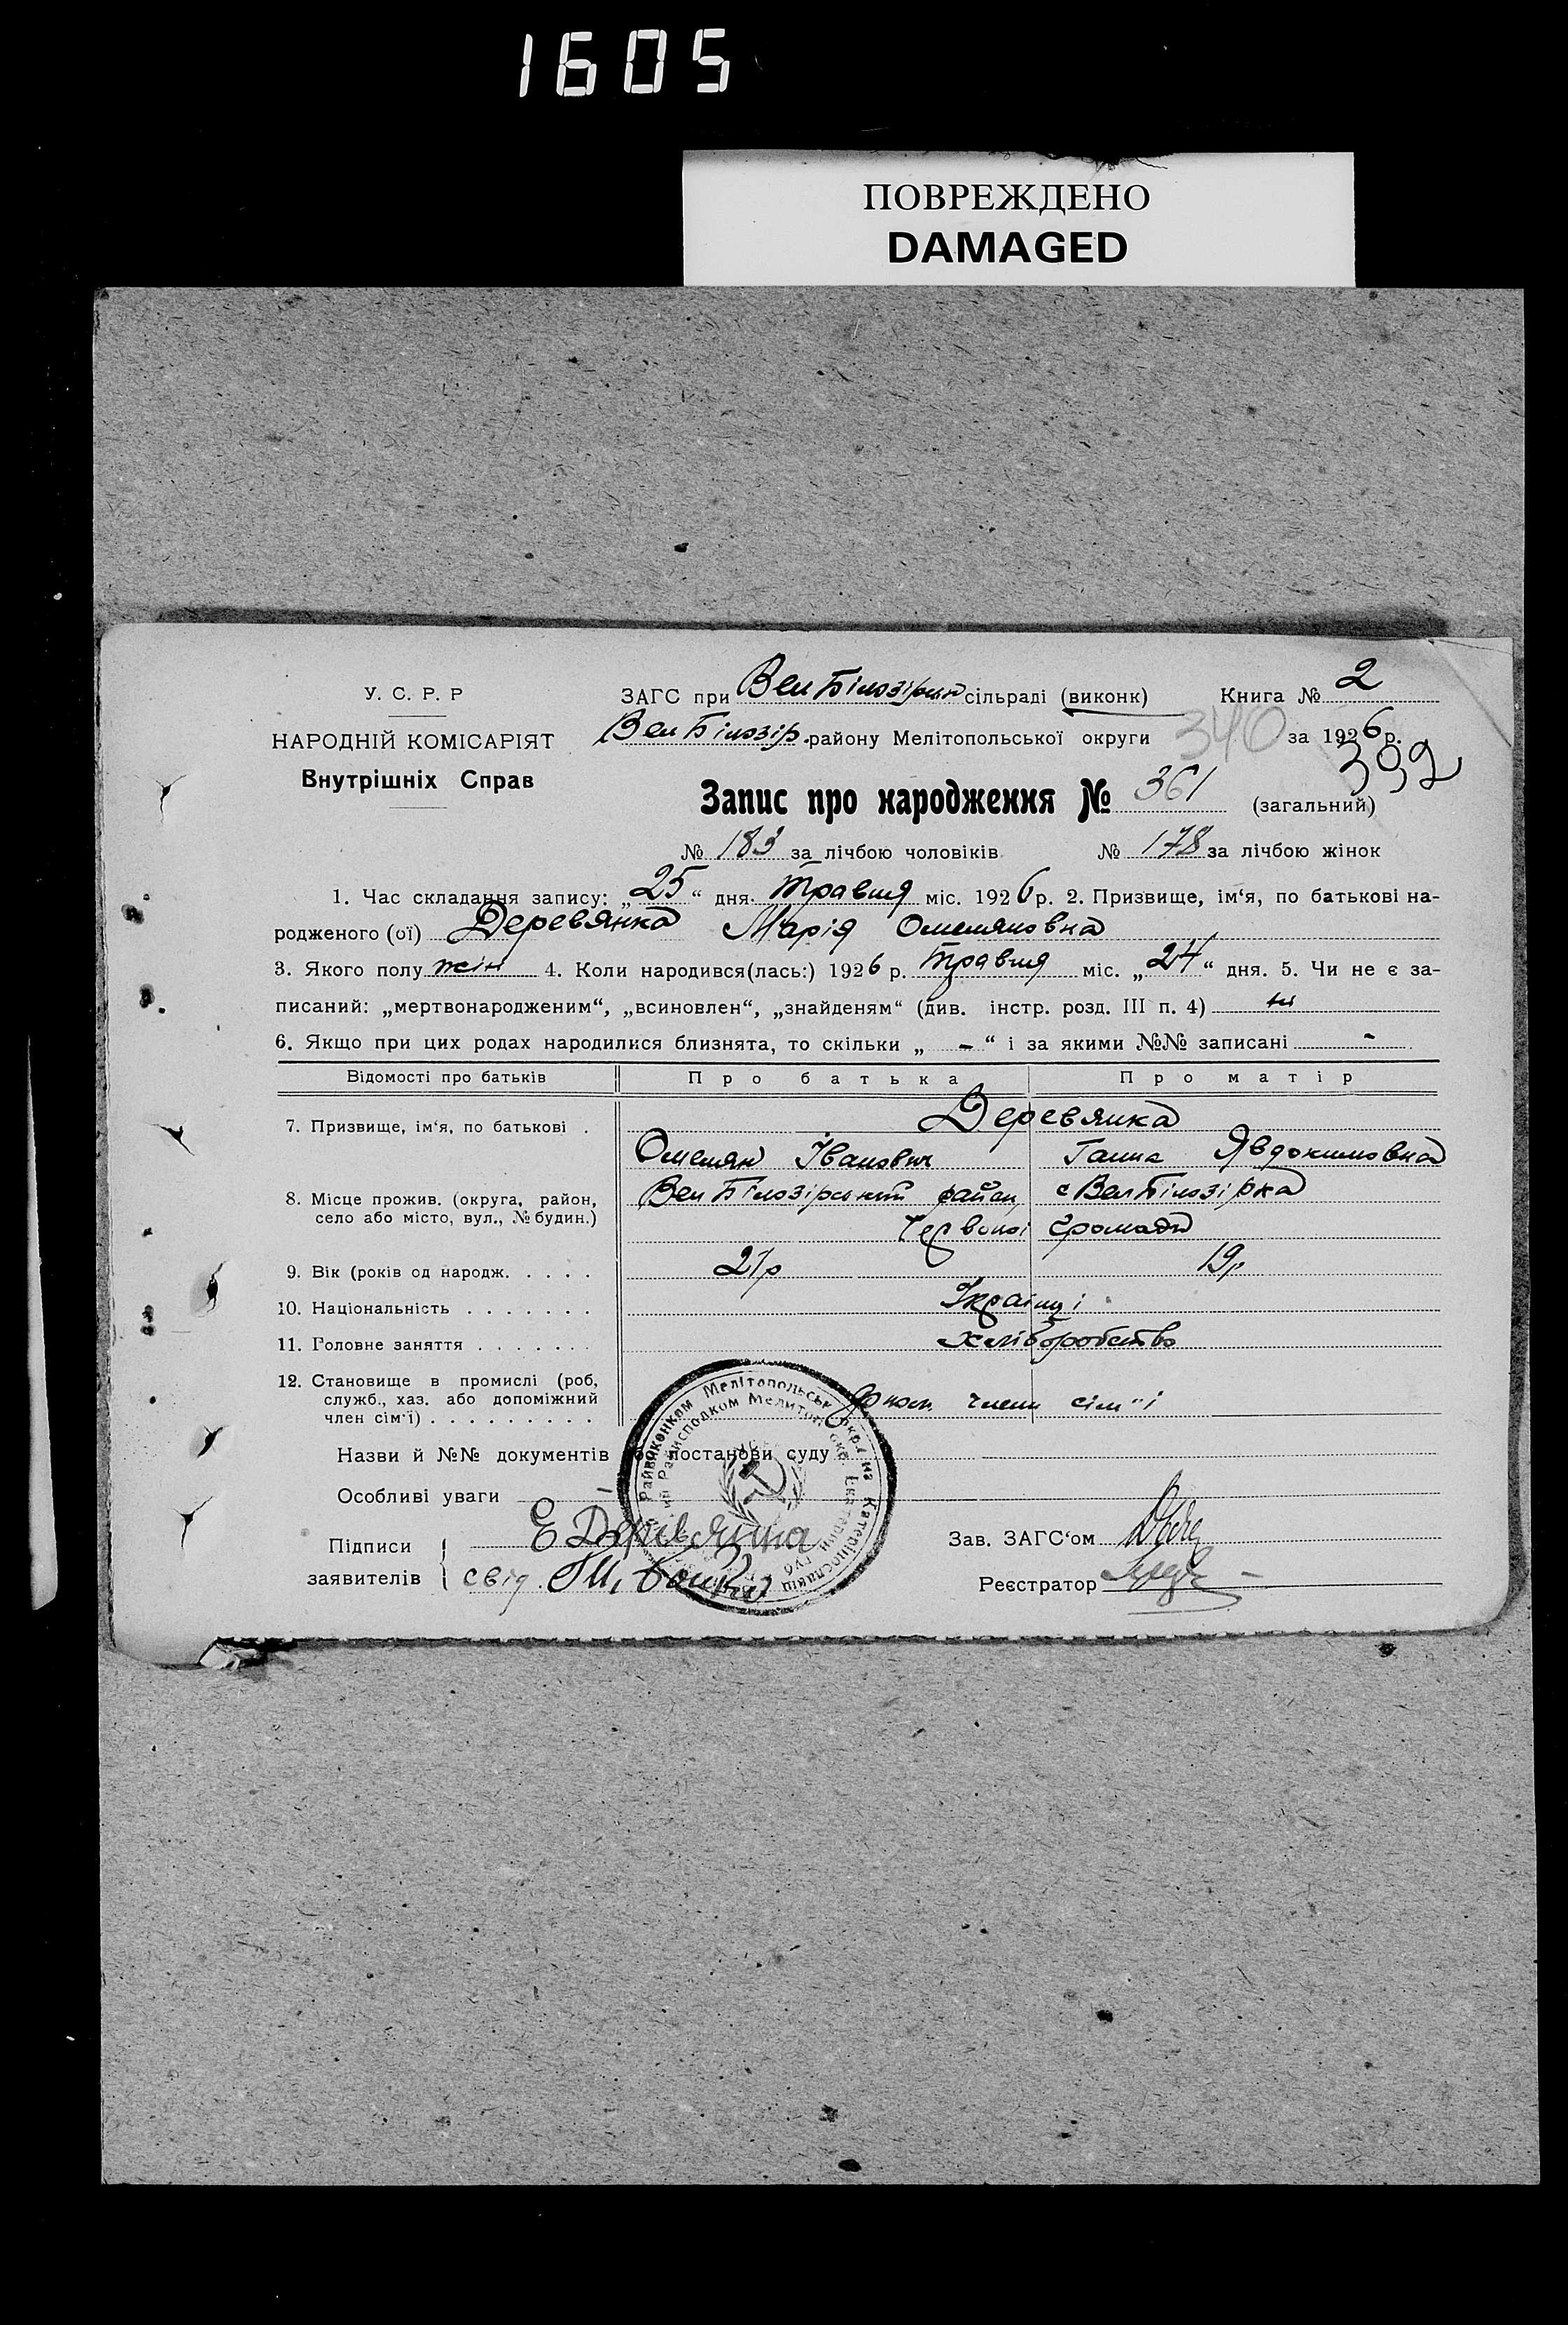 1605
ПОВРЕЖДЕНО
DAMAGED
У. С. Р. Р
НАРОДНІЙ КОМІСАРІЯТ
Внутрішніх Справ
ЗАГС при Вел Білозірськ сільраді (виконк) Книга № 2
Вел Білозір. району Мелітопольської округи 340 за 1926 р.
392
Запис про народження № 361 (загальний)
№ 183 за лічбою чоловіків № 178 за лічбою жінок
1. Час складання запису: „25“ дня Травня міс. 1926 р. 2. Призвище, ім‘я, по батькові на-
родженого (ої) Деревянко Марія Омеляновна
3. Якого полу жін 4. Коли народився(лась:) 1926 р. Травня міс. „24“ дня. 5. Чи не є за-
писаний: „мертвонародженим“, „всиновлен“, „знайденям“ (див. інстр. розд. III п. 4) ні
6. Якщо при цих родах народилися близнята, то скільки „ - “ і за якими №№ записані -
Відомості про батьків Про батька Про матір
7. Призвище, ім‘я, по батькові . Деревянко
Омелян Іванович Ганна Явдокимовна
8. Місце прожив. (округа, район, село або місто, вул., № будин.) Вел Білозірський район, с Вел Білозірка
Червоної Громади
9. Вік (років од народж. . . . . 21р 19р
10. Національність . . . . . . . Українці
11. Головне заняття . . . . . . . хліборобство
12. Становище в промислі (роб, служб., хаз. або допоміжний член сім‘ї) . . . . . . . . . члени сім"ї
Назви й №№ документів постанови суду
Особливі уваги
Підписи заявителів
Е Деревянко
свід.
Зав. ЗАГС‘ом
Реєстратор